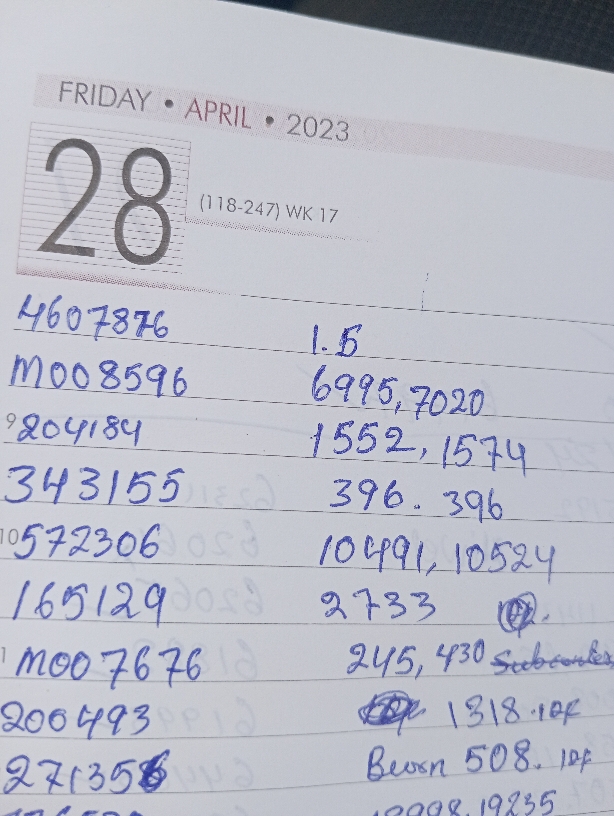 FRIDAY • APRIL • 2023
28
(118-247) WK 17
4607876 1.5
M008596 6995, 7020
9 204184 1552, 1574
343155 396. 396
10 572306 10491, 10524
165129 2733
M007676 245, 430
200493 1318.
271356 508.